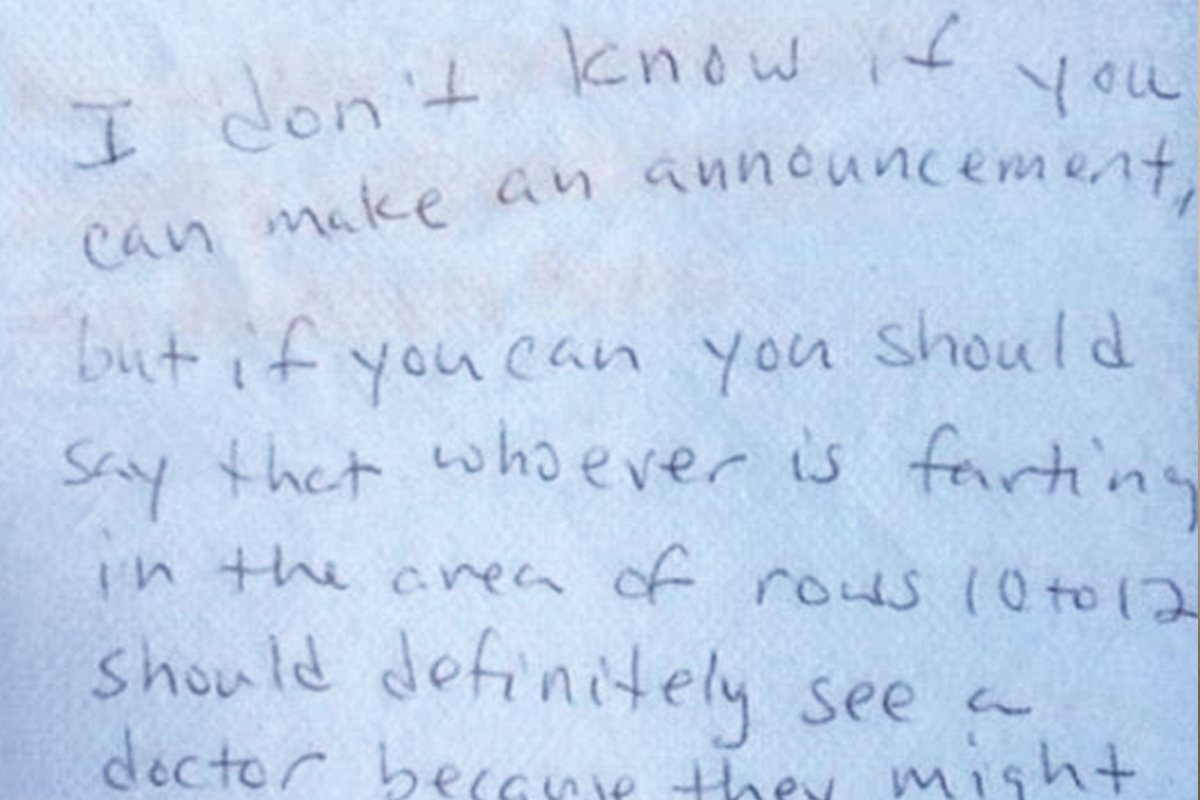 I don't know if you
can make an announcement,
but if you can you should
say that whoever is farting
in the area of rows 10 to 12
should definitely see a
doctor because they might